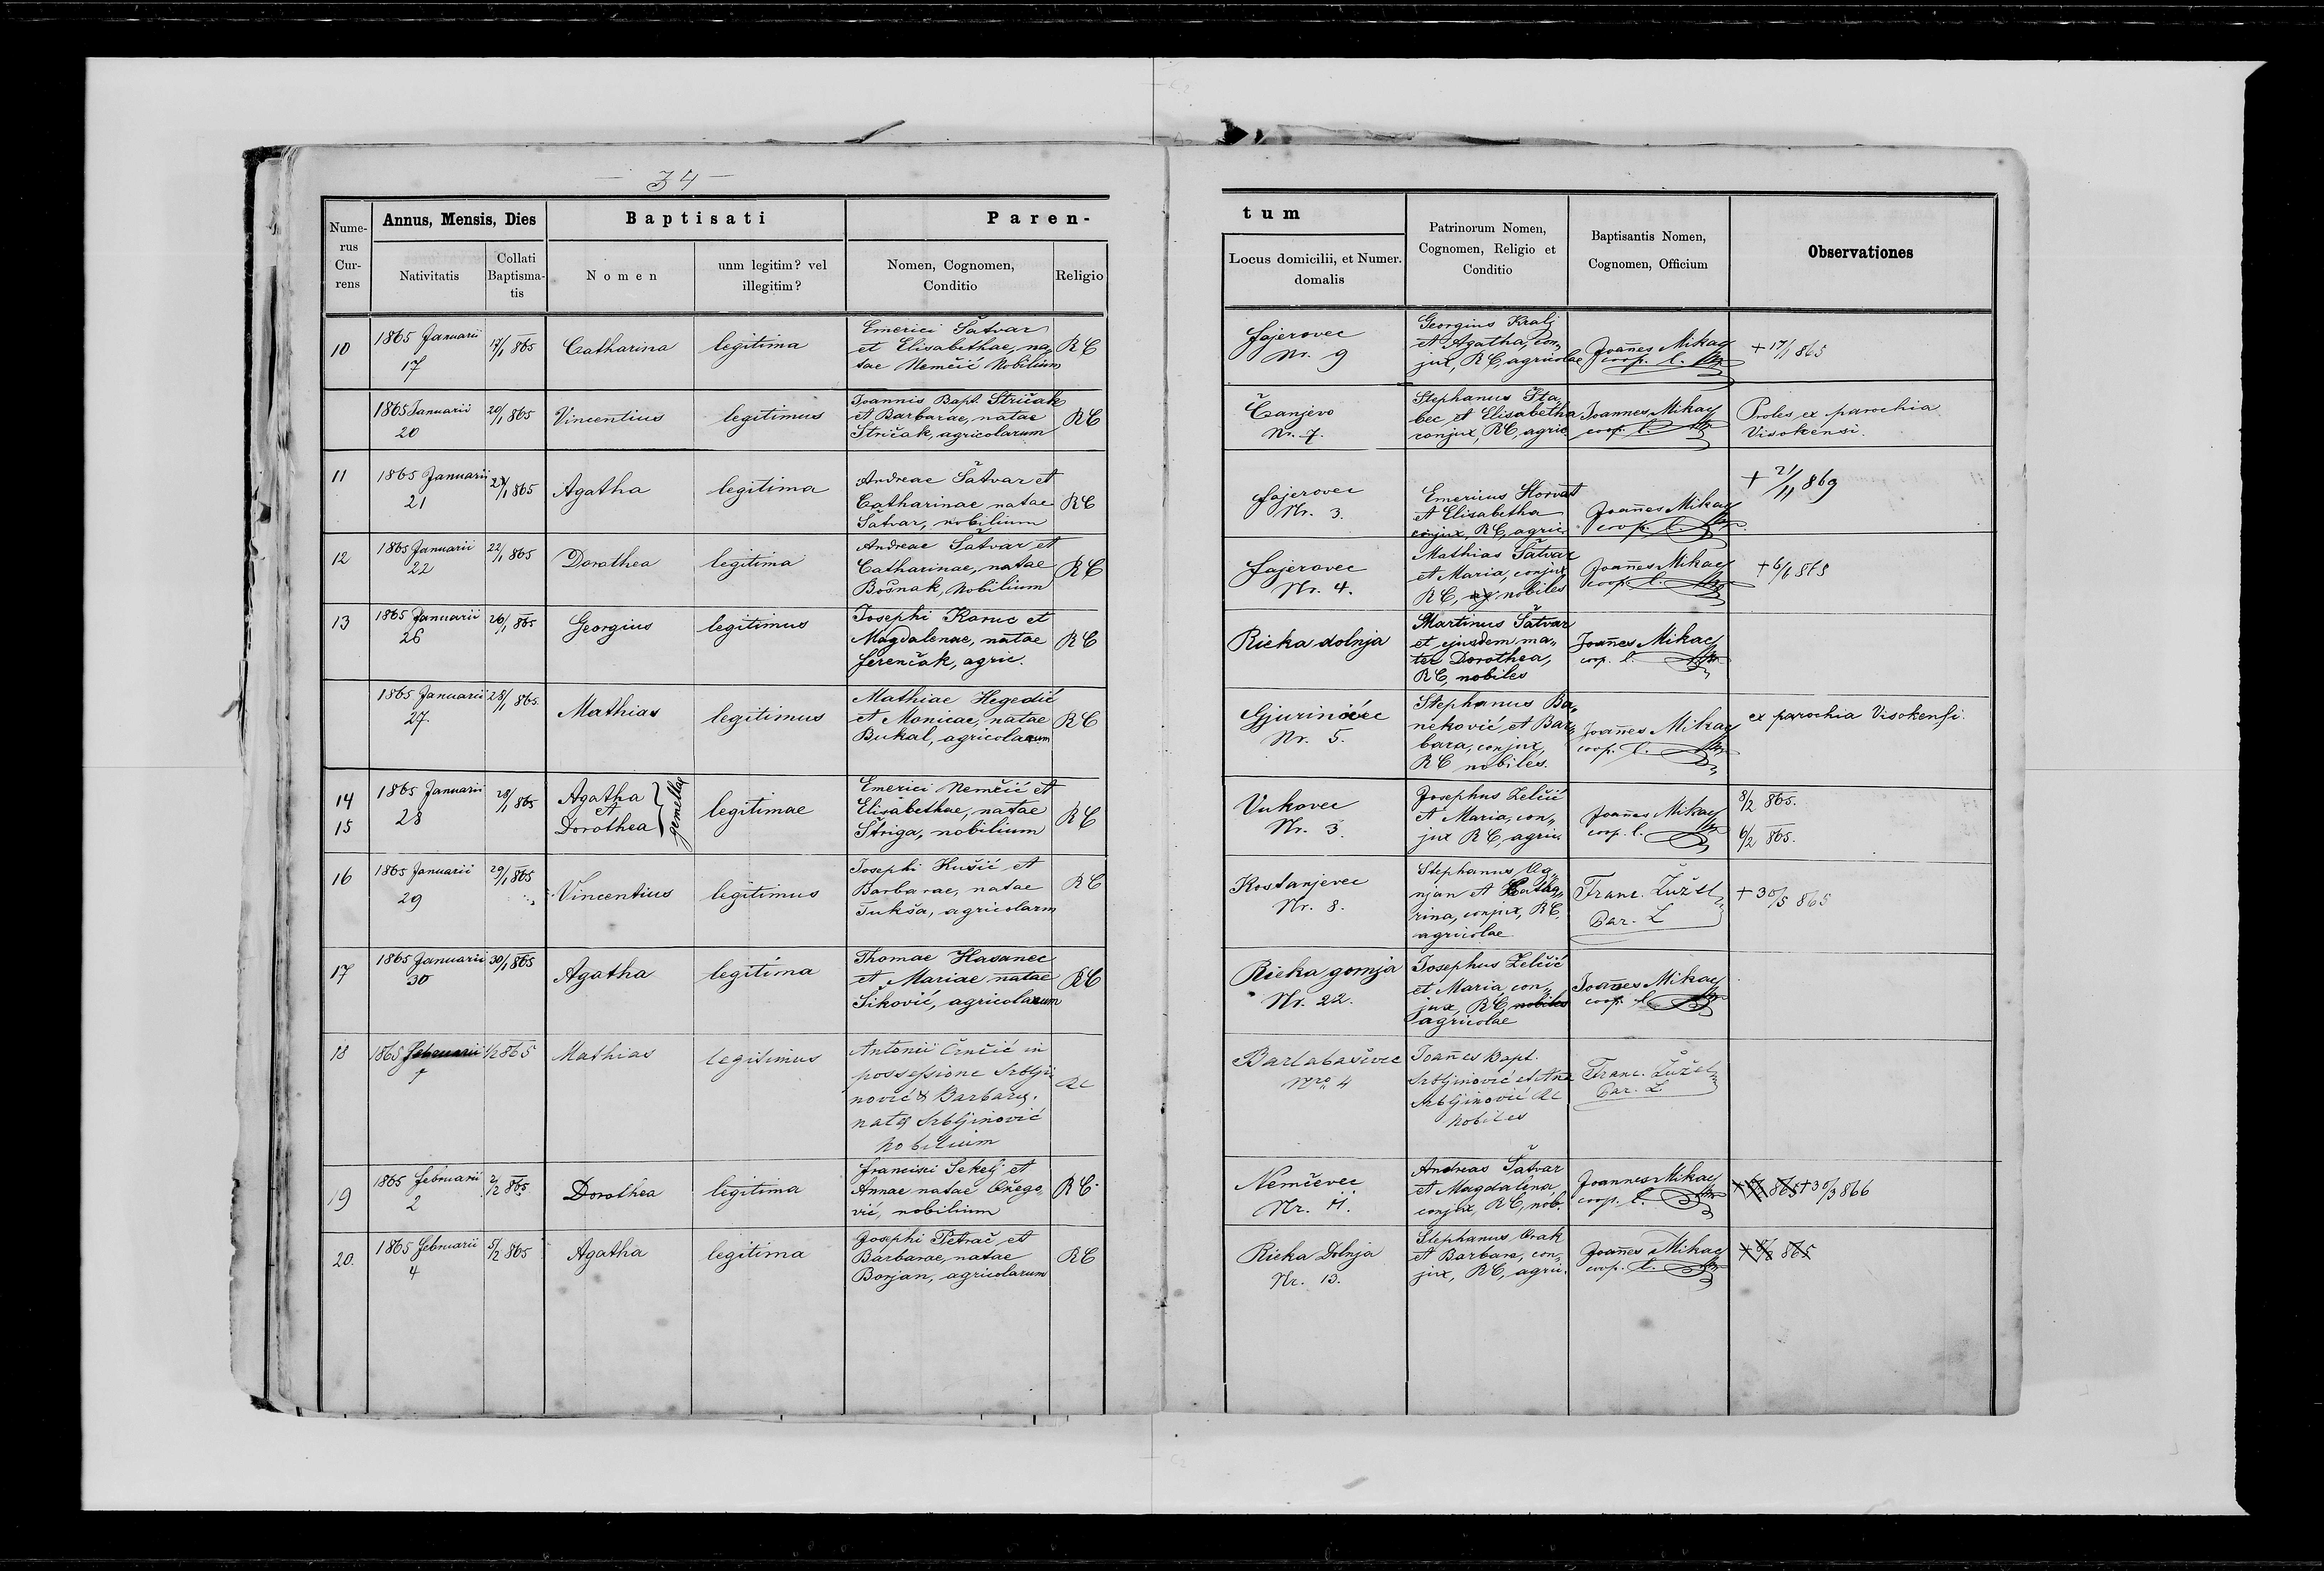 — 34 —
Numerus Currens
Annus, Mensis, Dies
Nativitatis
Collati Baptismatis
Baptisati
Nomen
unm legitim? vel illegitim?
Paren-
Nomen, Cognomen, Conditio
Religio
tum
Locus domicilii, et Numer. domalis
Patrinorum Nomen, Cognomen, Religio et Conditio
Baptisantis Nomen, Cognomen, Officium
Observationes
10
1865 Januarii
17
17/1 865
Catharina
legitima
Emerici Šatvar
et Elisabethae, na„
tae Nemčić Nobilium
RC
Fajerovec
Nr. 9
Georgius Kralj
et Agatha, con„
jux, RC, agricolae
Joanes Mikac
coop. l.
+ 17/1 865
1865 Januarii
20
20/1 865
Vincentius
legitimus
Joannis Bapt. Stričak
et Barbarae, natae
Stričak, agricolarum
RC
Čanjevo
Nr. 7.
Stephanus Šta„
bec et Elisabetha
conjux, RC, agric.
Joannes Mikac
coop. l.
Proles ex parochia
Visokensi.
11
1865 Januarii
21
21/1 865
Agatha
legitima
Andreae Šatvar et
Catharinae natae
Šatvar, nobilium
RC
Fajerovec
Nr. 3.
Emericus Horvat
et Elisabetha
conjux, RC, agric.
Joanes Mikac
coop. l.
+ 21/11 869
12
1865 Januarii
22
22/1 865
Dorothea
legitima
Andreae Šatvar et
Catharinae, natae
Bošnak, Nobilium
RC
Fajerovec
Nr. 4.
Mathias Šatvar
et Maria, conjux
RC, ag nobiles
Joanes Mikac
coop. l.
+ 6/6 865
13
1865 Januarii
26
26/1 865
Georgius
legitimus
Josephi Kanuc et
Magdalenae, natae
Ferenčak, agric.
RC
Rieka dolnja
Martinus Šatvar
et ejusdem ma„
ter Dorothea,
RC, nobiles
Joanes Mikac
coop. l.
1865 Januarii
27.
28/1 865.
Mathias
legitimus
Mathiae Hegedić
et Monicae, natae
Bukal, agricolarum
RC
Gjurinovec
Nr. 5.
Stephanus Ba„
neković et Bar„
bara, conjux,
RC nobiles.
Joanes Mikac
coop. l.
ex parochia Visokensi.
14
15
1865 Januarii
28
28/1 865
Agatha
et
Dorothea
gemellae
legitimae
Emerici Nemčić et
Elisabethae, natae
Štriga, nobilium
RC
Vukovec
Nr. 3.
Josephus Zelčić
et Maria, con„
jux RC, agric.
Joanes Mikac
coop. l.
8/2 865.
6/2 865.
16
1865 Januarii
29
29/1 865
Vincentius
legitimus
Josephi Kušić et
Barbarae, natae
Tukša, agricolarm
RC
Kostanjevec
Nr. 8.
Stephanus Og„
njan et Catha„
rina, conjux, RC.
agricolae
Franc. Žužel
Par. L
+ 30/5 865
17
1865 Januarii
30
30/1 865
Agatha
legitima
Thomae Hasanec
et Mariae natae
Šiković, agricolarum
RC
Rieka gornja
Nr. 22.
Josephus Zelčić
et Maria, con„
jux, RC, nobiles
agricolae
Joanes Mikac
coop. l.
18
1865 Februarii
1
1/2 865
Mathias
legitimus
Antonii Črnčić in
possessione Srblji
nović & Barbarae.
natae Srbljinović
Nobilium
RC
Barlabaševec
Nro 4
Joanes Bapt.
Srbljinović et Ana
Srbljinović RC
Nobiles
Franc. Žužel
Par. L.
19
1865 Februarii
2
2/2 865
Dorothea
legitima
Francisci Sekelj et
Annae natae Ožego„
vić, nobilium
RC
Nemčevec
Nr. 11.
Andreas Šatvar
et Magdalena
conjux, RC, nob.
Joannes Mikac
coop. l.
865 + 30/3 866
20.
1865 Februarii
4
5/2 865
Agatha
legitima
Josephi Petrač et
Barbarae, natae
Borjan, agricolarum
RC
Rieka Dolnja
Nr. 13.
Stephanus Orak
et Barbara, con„
jux, RC, agric.
Joanes Mikac
coop. l.
865